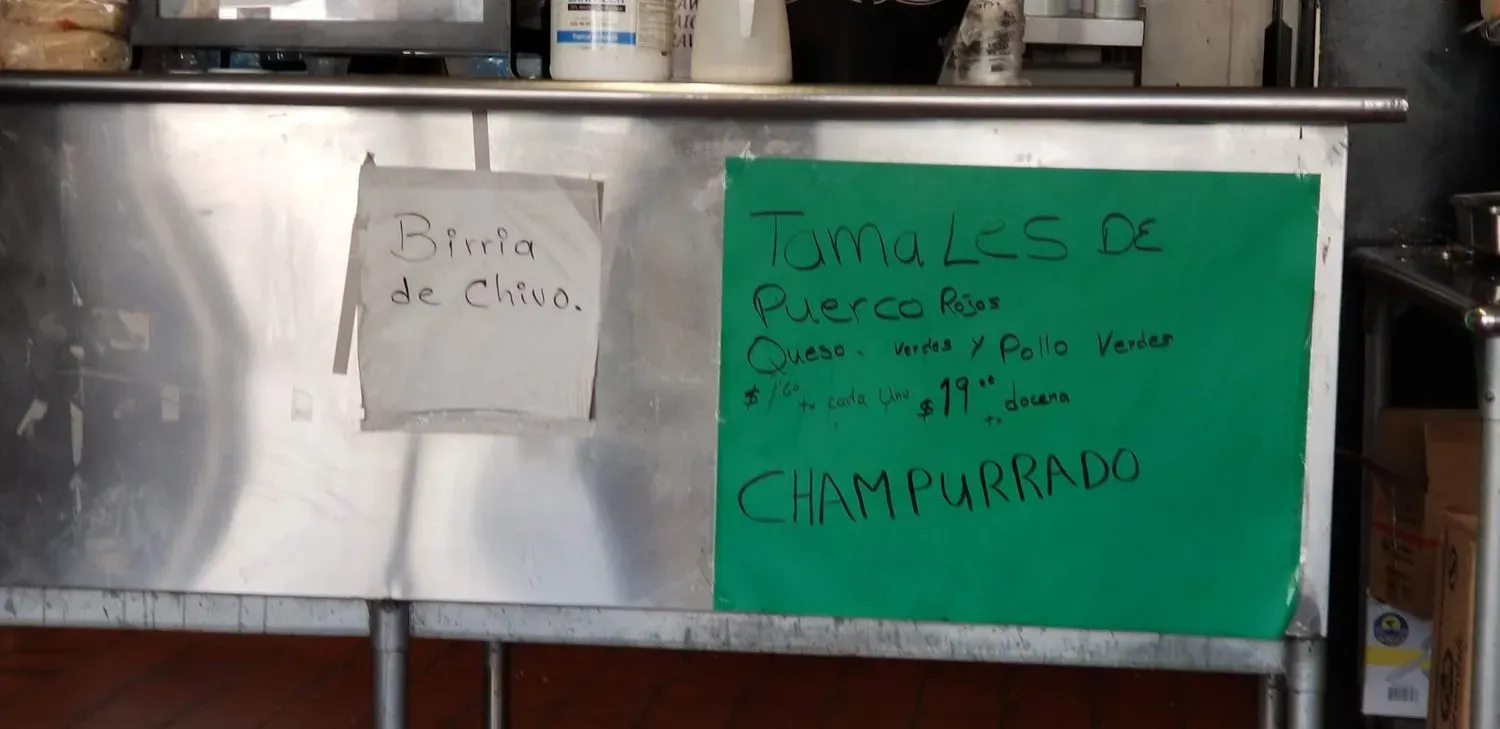 Birria
de Chivo.
Tamales DE
Puerco Rojos
Queso. verdes y Pollo Verdes
$1.60 tx cada Uno $19.00 tx docena
CHAMPURRADO